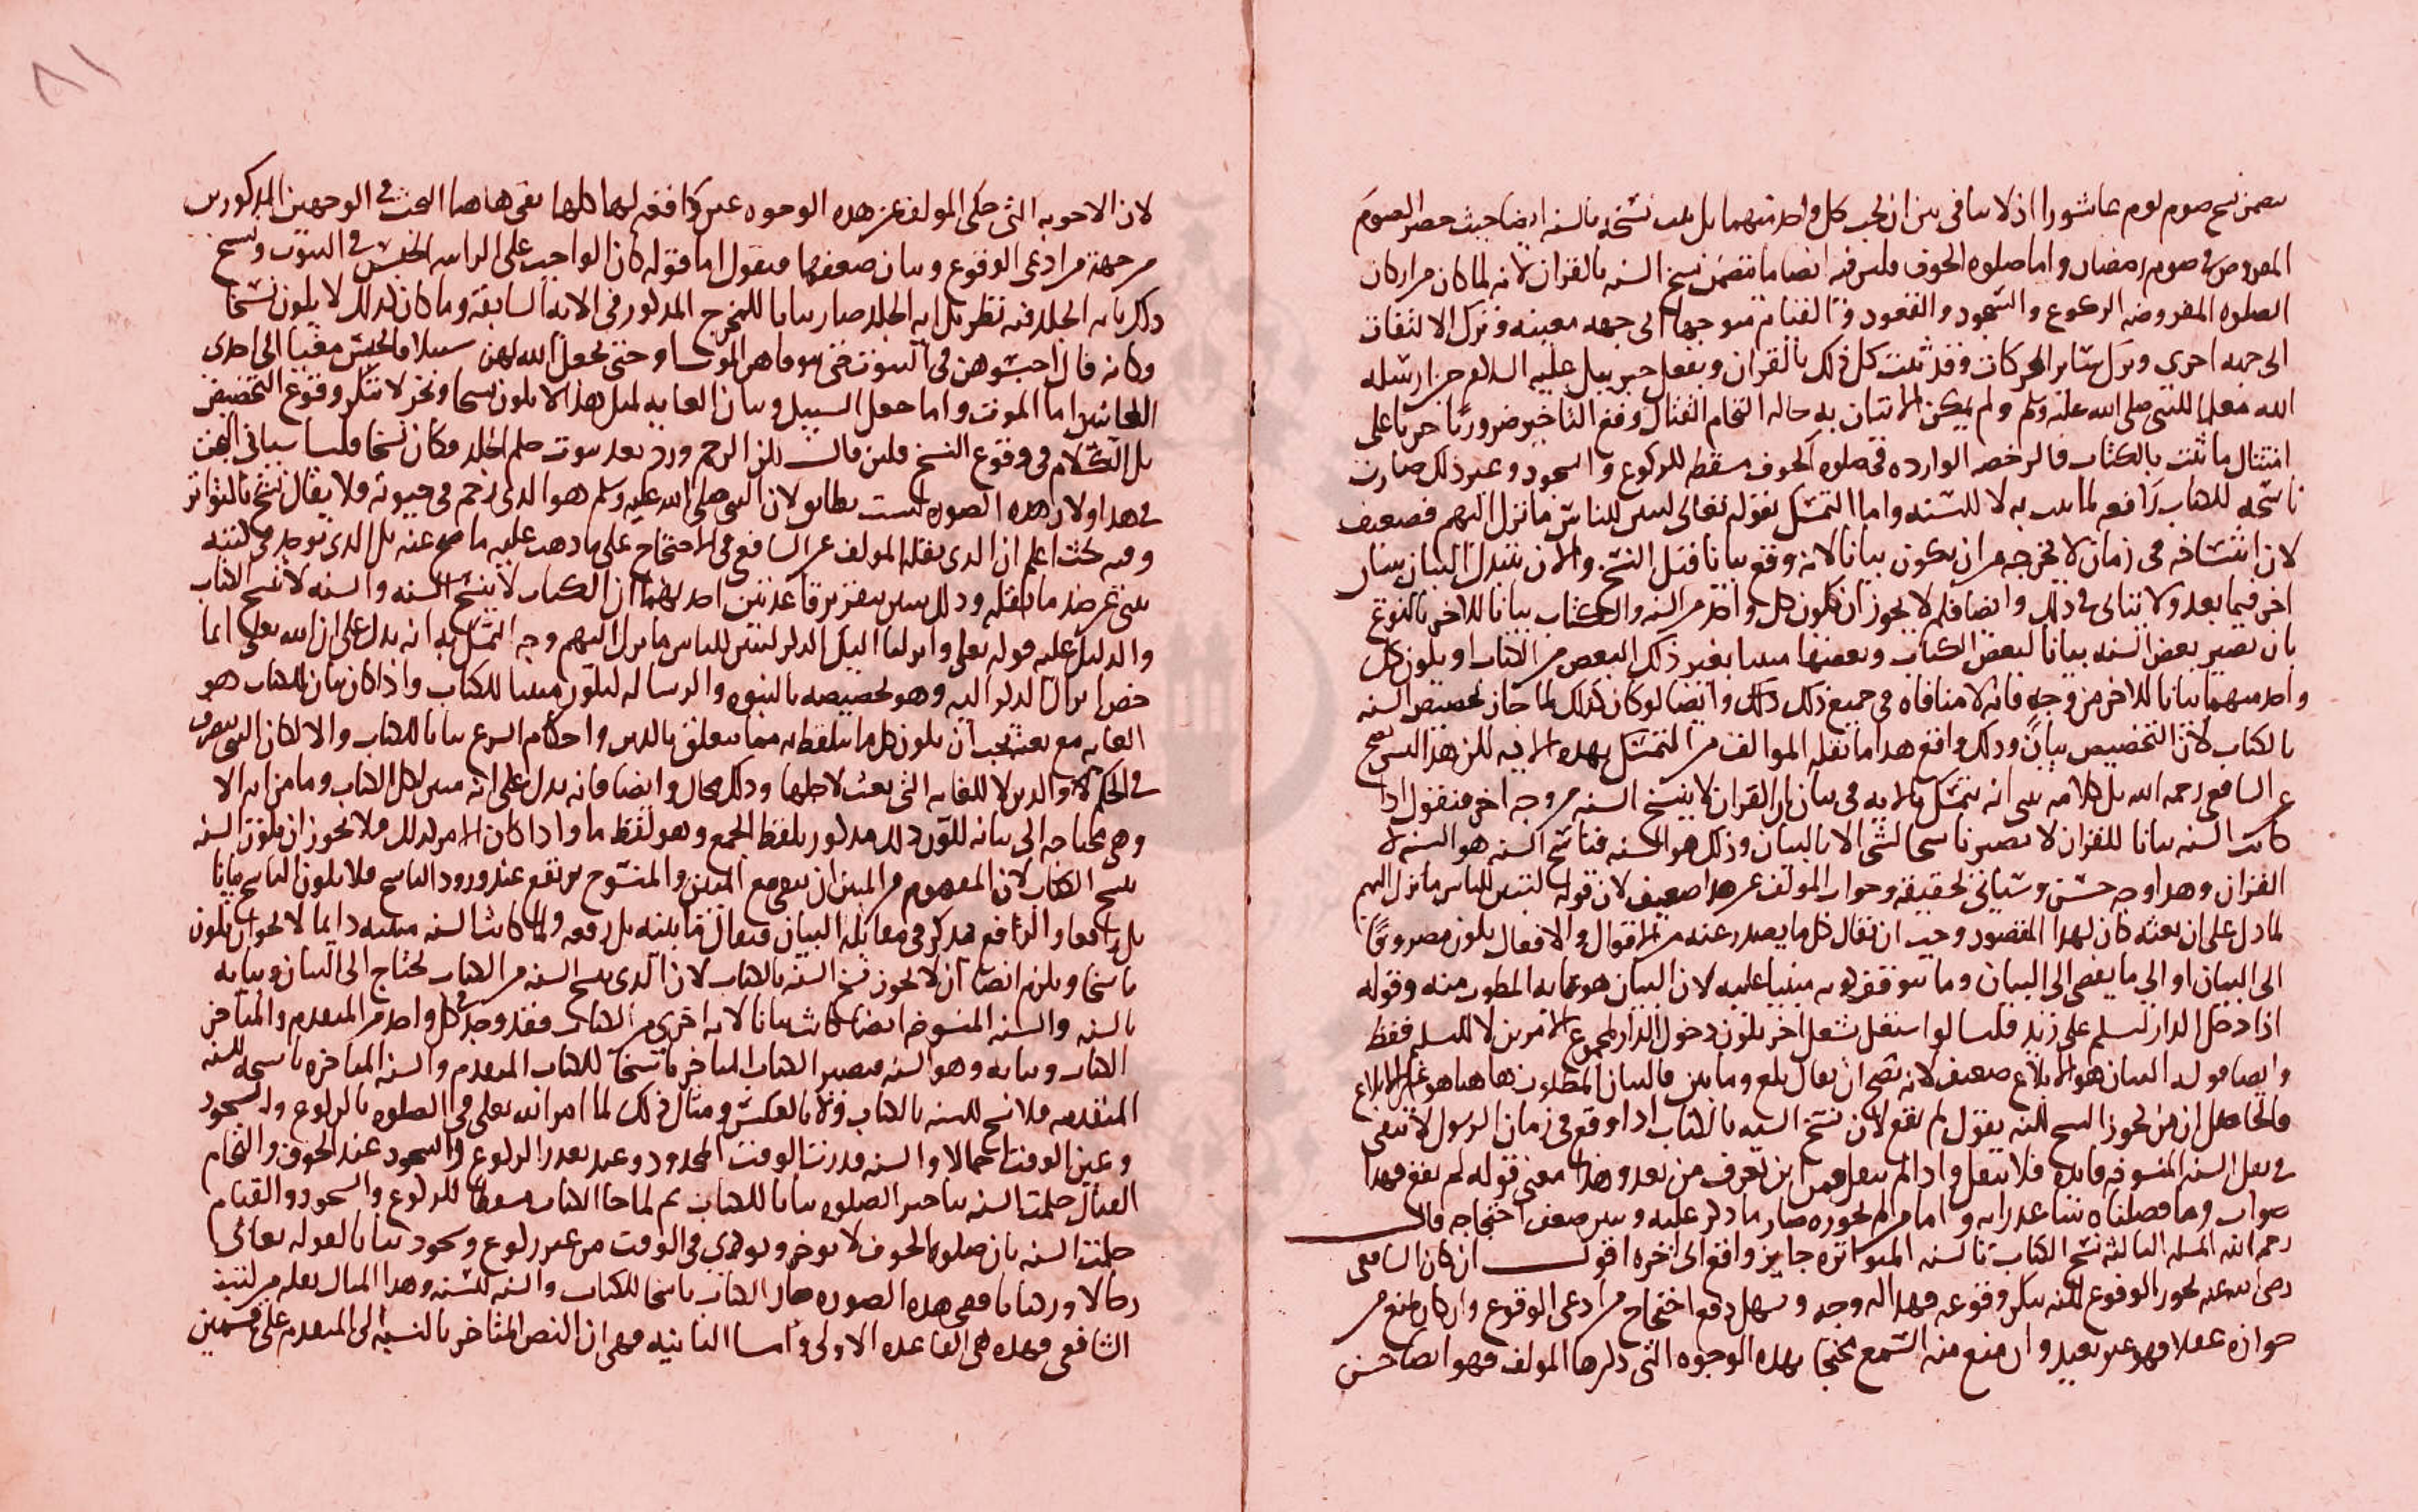 نسخ صوم يوم عاشورا اذ لا ينافي بين ان يجب كل واحد منهما بل يجب نسخه بالسنه ايضا حيث حصر الصوم
المفروض في صوم رمضان واما صلوه الخوف فليس فيه ايضا ما يتضمن نسخ السنه بالقران لانه لما كان من اركان
الصلوه المفروضه الركوع والسجود والقعود والقيام متوجها الى جهه معينه وترك الالتفات
الى جهه اخرى وترك سائر الحركات وقد ثبت كل ذلك بالقران وبفعل جبريل عليه السلام حين ارسله
الله معلما للنبي صلى الله عليه وسلم ولم يمكن الاتيان به حاله التحام القتال وقع التاخير ضروريا جريا على
امتثال ما ثبت بالكتاب فالرخصه الوارده في صلوه الخوف مسقطه للركوع والسجود وغير ذلك صارت
ناسخه للكتاب رافعه لما ثبت به لا للسنه واما التمسك بقوله تعالى لتبين للناس ما نزل اليهم فضعيف
لان انتساخه في زمان لا يخرجه من ان يكون بيانا لانه وقع بيانا قبل النسخ والان يتبدل البيان ببيان
اخر فيما بعد ولا تنافي في ذلك وايضا فلم لا يجوز ان يكون كل واحد من السنه والكتاب بيانا للاخر بالنوع
بان تصير بعض السنه بيانا لبعض الكتاب وبعضها مبينا بغير ذلك البعض من الكتاب او يكون كل
واحد منهما بيانا للاخر من وجه فانه لا منافاه في جميع ذلك وايضا لو كان كذلك لما جاز تخصيص السنه
بالكتاب لان التخصيص بيان وذلك واقع هذا ما نقله المولف من التمسك بهذه الايه لكن هذا
عن الشافعي رحمه الله بل كلامه انه يتمسك بالايه في بيان ان القران لا ينسخ السنه من وجه اخر فنقول اذا
كانت السنه بيانا للقران لا يصير ناسخا لشي الا بالبيان وذلك هو السنه فناسخ السنه هو السنه لا
القران وهذا وجه حسن وسياتي تحقيقه وجواب المولف عن هذا ضعيف لان قوله لتبين للناس ما نزل اليهم
لما دل على ان بعثه كان لهذا المقصود وجب ان يقال كل ما يصدر عنه من الاقوال والافعال يكون مصروفا
الى البيان او الى ما يفضي الى البيان وما يتوقف كونه مبنيا عليه لان البيان هو غايه المطلوب منه وقوله
اذا دخل الدار ليسلم على زيد فلما لو اشتغل بشغل اخر يكون دخول الدار لمجموع الامرين لا للتسليم فقط
وايضا قوله البيان هو الابلاغ ضعيف لانه يصح ان يقال بلغ وما بين فالبيان المطلوب هاهنا هو غير الابلاغ
فالحاصل ان من يجوز النسخ لكنه يقول لم يقع لان نسخ السنه بالكتاب اذا وقع في زمان الرسول لا تبقى
في نقل السنه المنسوخه فايده فلا تنقل واذا لم تنقل فمن اين تعرف من بعد وهذا معنى قوله لم يقع فهذا
جواب وما فصلناه واما من لم يجوزه صار ما ذكر عليه وتبين ضعف احتجاجه قال
رحمه الله المسله الثالثه نسخ الكتاب بالسنه المتواتره جايز وواقع الى اخره اقول ان كان الشافعي
رضي الله عنه يجوز الوقوع لكنه ينكر وقوعه فهذا له وجه ويسهل دفع احتجاج من ادعى الوقوع وان كان يمنع من
جوازه عقلا فهو غير بعيد وان منع منه السمع محتجا بهذه الوجوه التي ذكرها المولف فهو ايضا حسن
لان الاجوبه التي حكى المولف عن هذه الوجوه غير دافعه لها كلها بقي هاهنا البحث في الوجهين المذكورين
من جهة من ادعى الوقوع وبيان ضعفهما فنقول اما قوله كان الواجب على الزانيه الحبس في البيوت ونسخ
ذلك بايه الجلد فيه نظر بل ايه الجلد صار بيانا للمخرج المذكور في الايه السابقه وما كان كذلك لا يكون نسخا
وكانه قال احبسوهن في البيوت حتى يتوفاهن الموت او حتى يجعل الله لهن سبيلا فالحبس مغيا الى احدى
الغايتين اما الموت واما جعل السبيل وبيان الغايه لمثل هذا لا يكون نسخا ونحن لا ننكر وقوع التخصيص
بل الكلام في وقوع النسخ فلئن قالت لكن الرجم ورد بعد ثبوت حكم الجلد فكان نسخا قلنا سياتي البحث
في هذا ولان هذه الصوره ليست بطائل لان النبي صلى الله عليه وسلم هو الذي رجم في حيوته فلا يقال نسخ بالتواتر
وفيه بحث اعلم ان الذي نقله المولف عن الشافعي في الاحتجاج على ما ذهب عليه ما صح عنه بل الذي يوجد في كتبه
شي غير ما نقله وذلك يتبين بتقرير قاعدتين احديهما ان الكتاب لا ينسخ السنه والسنه لا تنسخ الكتاب
والدليل عليه قوله تعالى وانزلنا اليك الذكر لتبين للناس ما نزل اليهم وجه التمسك به انه يدل على ان الله تعالى انما
خص انزال الذكر اليه وهو تخصيصه بالنبوه والرساله ليكون مبينا للكتاب واذا كان بيان الكتاب هو
الغايه مع بعثه يجب ان يكون كل ما يتلفظ به مما يتعلق بالدين واحكام الشرع بيانا للكتاب والا لكان النبي
في الحكم والدين لا للغايه التي بعث لاجلها وذلك محال وايضا فانه يدل على انه مبين لكل الكتاب وما من ايه الا
وهي محتاجه الى بيانه لكون ذلك مذكور بلفظ الجمع وهو لفظ ما واذا كان الامر كذلك فلا يجوز ان يكون السنه
تنسخ الكتاب لان المفهوم من المبين ان يبقى مع المبين والمنسوخ يرتفع عند ورود الناسخ فلا يكون الناسخ بيانا
بل رافعا والرافع يذكر في مقابله البيان فيقال ما بينه بل رفعه ولما كانت السنه مبينه دايما لا يجوز ان يكون
ناسخا ويلزم ايضا ان لا يجوز نسخ السنه بالكتاب لان الذي ينسخ السنه من الكتاب يحتاج الى البيان وبيانه
بالسنه والسنه المنسوخه ايضا كانت بيانا لايه اخرى من الكتاب فقد وجد في كل واحد من المتقدم والمتاخر
الكتاب وبيانه وهو السنه فيصير الكتاب المتاخر ناسخا للكتاب المتقدم والسنه المتاخره ناسخه للسنه
المتقدمه فلا نسخ للسنه بالكتاب ولا بالعكس ومثال ذلك لما امر الله تعالى في الصلوه بالركوع والسجود
وعين الوقت اجمالا والسنه قدرت الوقت المحدود وعند تعذر الركوع والسجود عند الخوف والتحام
القتال حكمت السنه بتاخير الصلوه بيانا للكتاب ثم لما جا الكتاب مسقطا للركوع والسجود والقيام
حكمت السنه بان صلوه الخوف لا توخر وتودى في الوقت من غير ركوع وسجود بيانا لقوله تعالى
رجالا وركبانا ففي هذه الصوره صار الكتاب ناسخا للكتاب والسنه للسنه وهذا المثال نقله من كتب
الشافعي فهذه هي القاعده الاولى واما الثانيه فهي ان النص المتاخر بالنسبه الى المتقدم على قسمين